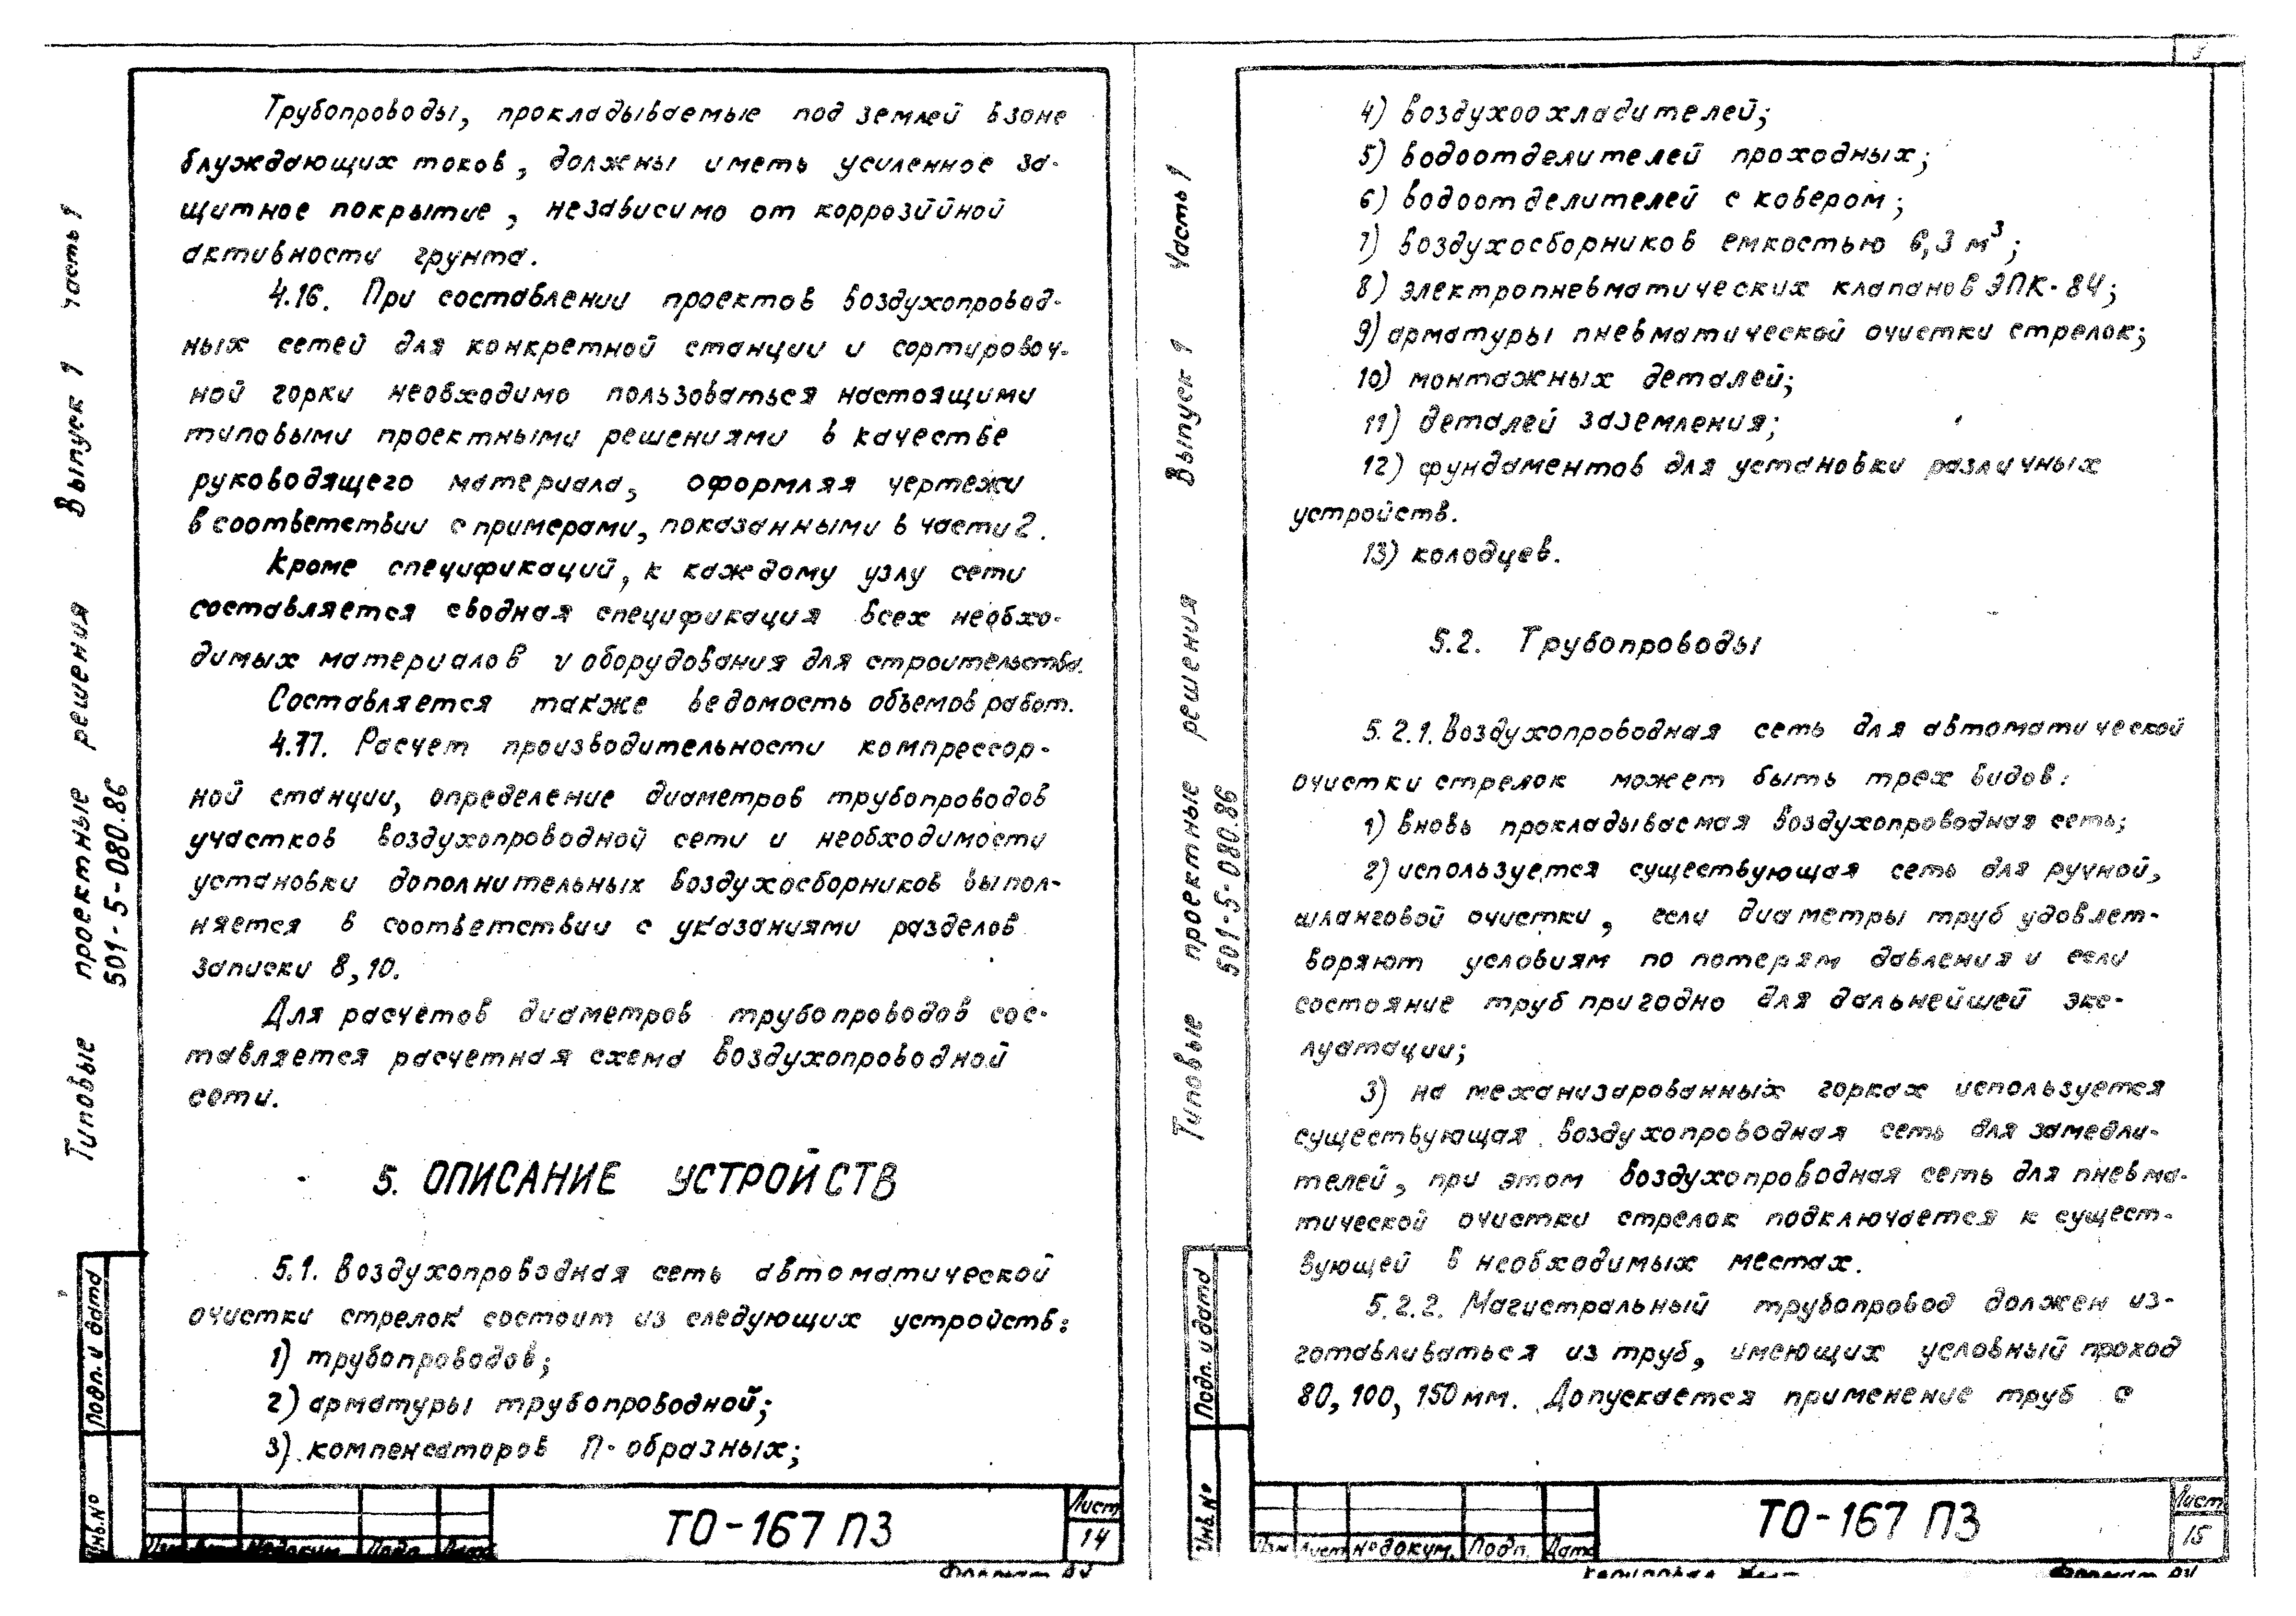 Трубопроводы, прокладываемые под землей в зоне
блуждающих токов, должны иметь усиленное за-
щитное покрытие, независимо от коррозийной
активности грунта.
4.16. При составлении проектов воздухопровод-
ных сетей для конкретной станции и сортировоч-
ной горки необходимо пользоваться настоящими
типовыми проектными решениями в качестве
руководящего материала, оформляя чертежи
в соответствии с примерами, показанными в части 2.
Кроме спецификаций, к каждому узлу сети
составляется сводная спецификация всех необхо-
димых материалов и оборудования для строительства.
Составляется также ведомость объемов работ.
4.17. Расчет производительности компрессор-
ной станции, определение диаметров трубопроводов
участков воздухопроводной сети и необходимости
установки дополнительных воздухосборников выпол-
няется в соответствии с указаниями разделов
записки 8, 10.
Для расчетов диаметров трубопроводов сос-
тавляется расчетная схема воздухопроводной
сети.
5. ОПИСАНИЕ УСТРОЙСТВ
5.1. Воздухопроводная сеть автоматической
очистки стрелок состоит из следующих устройств:
1) трубопроводов;
2) арматуры трубопроводной;
3) компенсаторов П-образных;
Типовые проектные решения Выпуск 1 Часть 1
501-5-080.86
Подп. и дата
Инв. №
Подп.
ТО-167 ПЗ
Лист
14
Формат А4
4) воздухоохладителей;
5) водоотделителей проходных;
6) водоотделителей с ковером;
7) воздухосборников емкостью 6,3 м³;
8) электропневматических клапанов ЭПК-84;
9) арматуры пневматической очистки стрелок;
10) монтажных деталей;
11) деталей заземления;
12) фундаментов для установки различных
устройств.
13) колодцев.
5.2. Трубопроводы
5.2.1. Воздухопроводная сеть для автоматической
очистки стрелок может быть трех видов:
1) вновь прокладываемая воздухопроводная сеть;
2) используется существующая сеть для ручной,
шланговой очистки, если диаметры труб удовлет-
воряют условиям по потерям давления и если
состояние труб пригодно для дальнейшей экс-
луатации;
3) на механизарованных горках используется
существующая воздухопроводная сеть для замедли-
телей, при этом воздухопроводная сеть для пневма-
тической очистки стрелок подключается к сущест-
вующей в необходимых местах.
5.2.2. Магистральный трубопровод должен из-
готавливаться из труб, имеющих условный проход
80, 100, 150 мм. Допускается применение труб с
Типовые проектные решения Выпуск 1 Часть 1
501-5-080.86
Подп. и дата
Инв. №
Изм Лист № докум. Подп. Дата
ТО-167 ПЗ
Лист
15
Формат А4